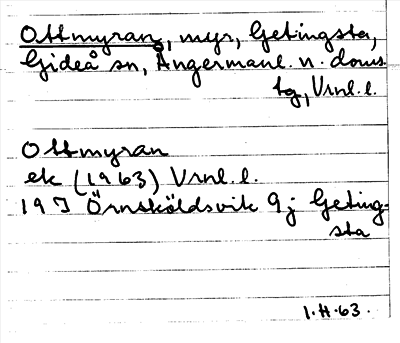 Ottmyran, myr, Getingsta,
Gideå sn, Ångermanl. n. doms.
tg, Vrnl. l.
Ottmyran
ek (1963) Vrnl. l.
19J Örnsköldsvik 9j Geting-
sta
1.H.63.